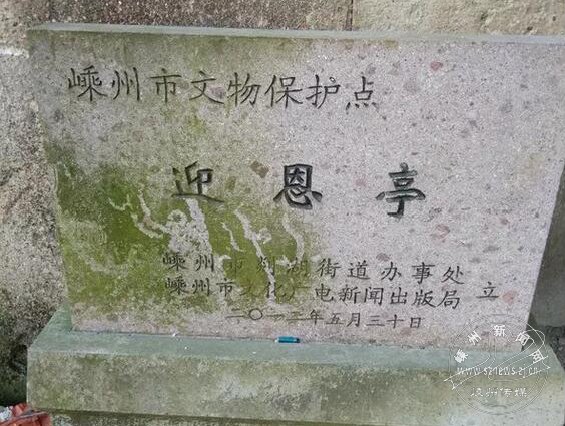 嵊州市文物保护点
迎恩亭
嵊州市剡湖街道办事处
嵊州市文化广电新闻出版局 立
二〇一三年五月三十日
嵊州新闻网
www.sznews.zj.cn
嵊州传媒